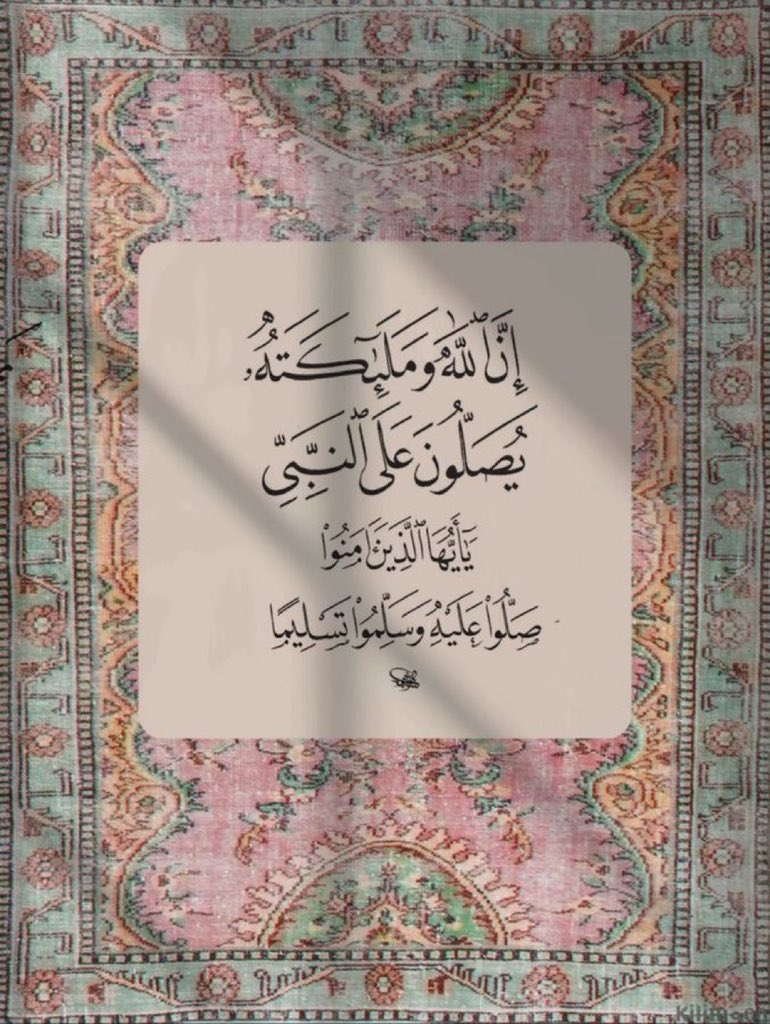 إِنَّ ٱللَّهَ وَمَلَـٰٓئِكَتَهُۥ
يُصَلُّونَ عَلَى ٱلنَّبِىِّ
يَـٰٓأَيُّهَا ٱلَّذِينَ ءَامَنُوا۟
صَلُّوا۟ عَلَيْهِ وَسَلِّمُوا۟ تَسْلِيمًا